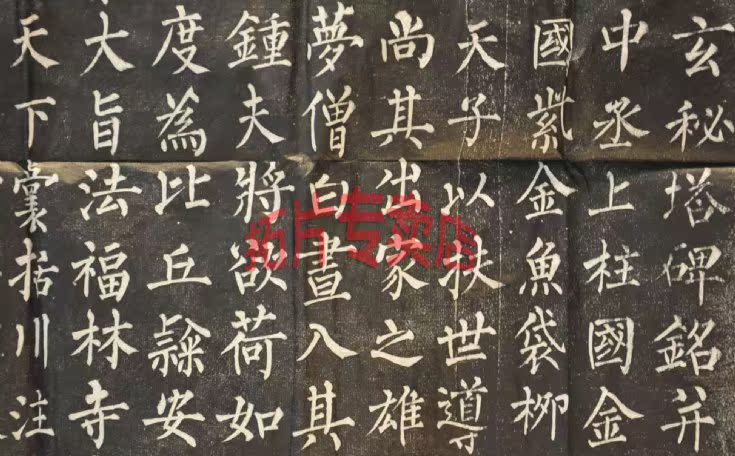 玄秘塔碑銘并
中丞上柱國金
國紫金魚袋柳
天子以扶世導
尚其出家之雄
夢僧白晝入其
鍾夫將欲荷如
度為比丘隷安
大旨法福林寺
天下囊括川注
拓片专卖店